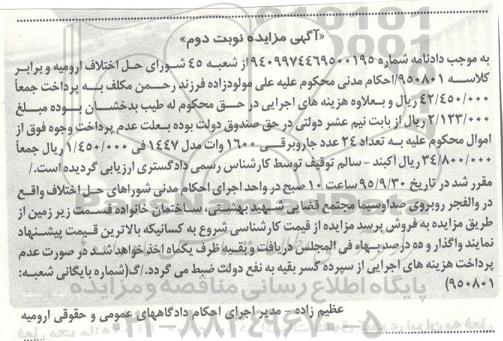 «آگهی مزایده نوبت دوم»
به موجب دادنامه شماره ۹۴۰۹۹۷۴۴۶۹۵۰۰۱۹۵ از شعبه ۴۵ شورای حل اختلاف ارومیه و برابر
کلاسه ۹۵۰۸۰۱/احکام مدنی محکوم علیه علی مولودزاده فرزند رحمن مکلف به پرداخت جمعاً
۴۲/۴۵۰/۰۰۰ ریال و بعلاوه هزینه های اجرایی در حق محکوم له طیب بدخشان بوده مبلغ
۲/۱۲۳/۰۰۰ ریال از بابت نیم عشر دولتی در حق صندوق دولت بوده بعلت عدم پرداخت وجوه فوق از
اموال محکوم علیه به تعداد ۲۴ عدد جاروبرقی ۱۶۰۰ وات مدل ۱۴۴۷ فی ۱/۴۵۰/۰۰۰ ریال جمعاً
۳۴/۸۰۰/۰۰۰ ریال آکبند - سالم توقیف توسط کارشناس رسمی دادگستری ارزیابی گردیده است./
مقرر شد در تاریخ ۹۵/۹/۳۰ ساعت ۱۰ صبح در واحد اجرای احکام مدنی شوراهای حل اختلاف واقع
در والفجر روبروی صداوسیما مجتمع قضایی شهید بهشتی، ساختمان خانواده قسمت زیر زمین از
طریق مزایده به فروش برسد مزایده از قیمت کارشناسی شروع به کسانیکه بالاترین قیمت پیشنهاد
نمایند واگذار و ده درصد بهاء فی المجلس دریافت و بقیه ظرف یکماه اخذ خواهد شد در صورت عدم
پرداخت هزینه های اجرایی از سپرده کسر بقیه به نفع دولت ضبط می گردد./گ(شماره بایگانی شعبه:
۹۵۰۸۰۱)
عظیم زاده - مدیر اجرای احکام دادگاههای عمومی و حقوقی ارومیه
پایگاه اطلاع رسانی مناقصه و مزایده
۰۲۱-۸۸۳۴۹۶۷۰-۵